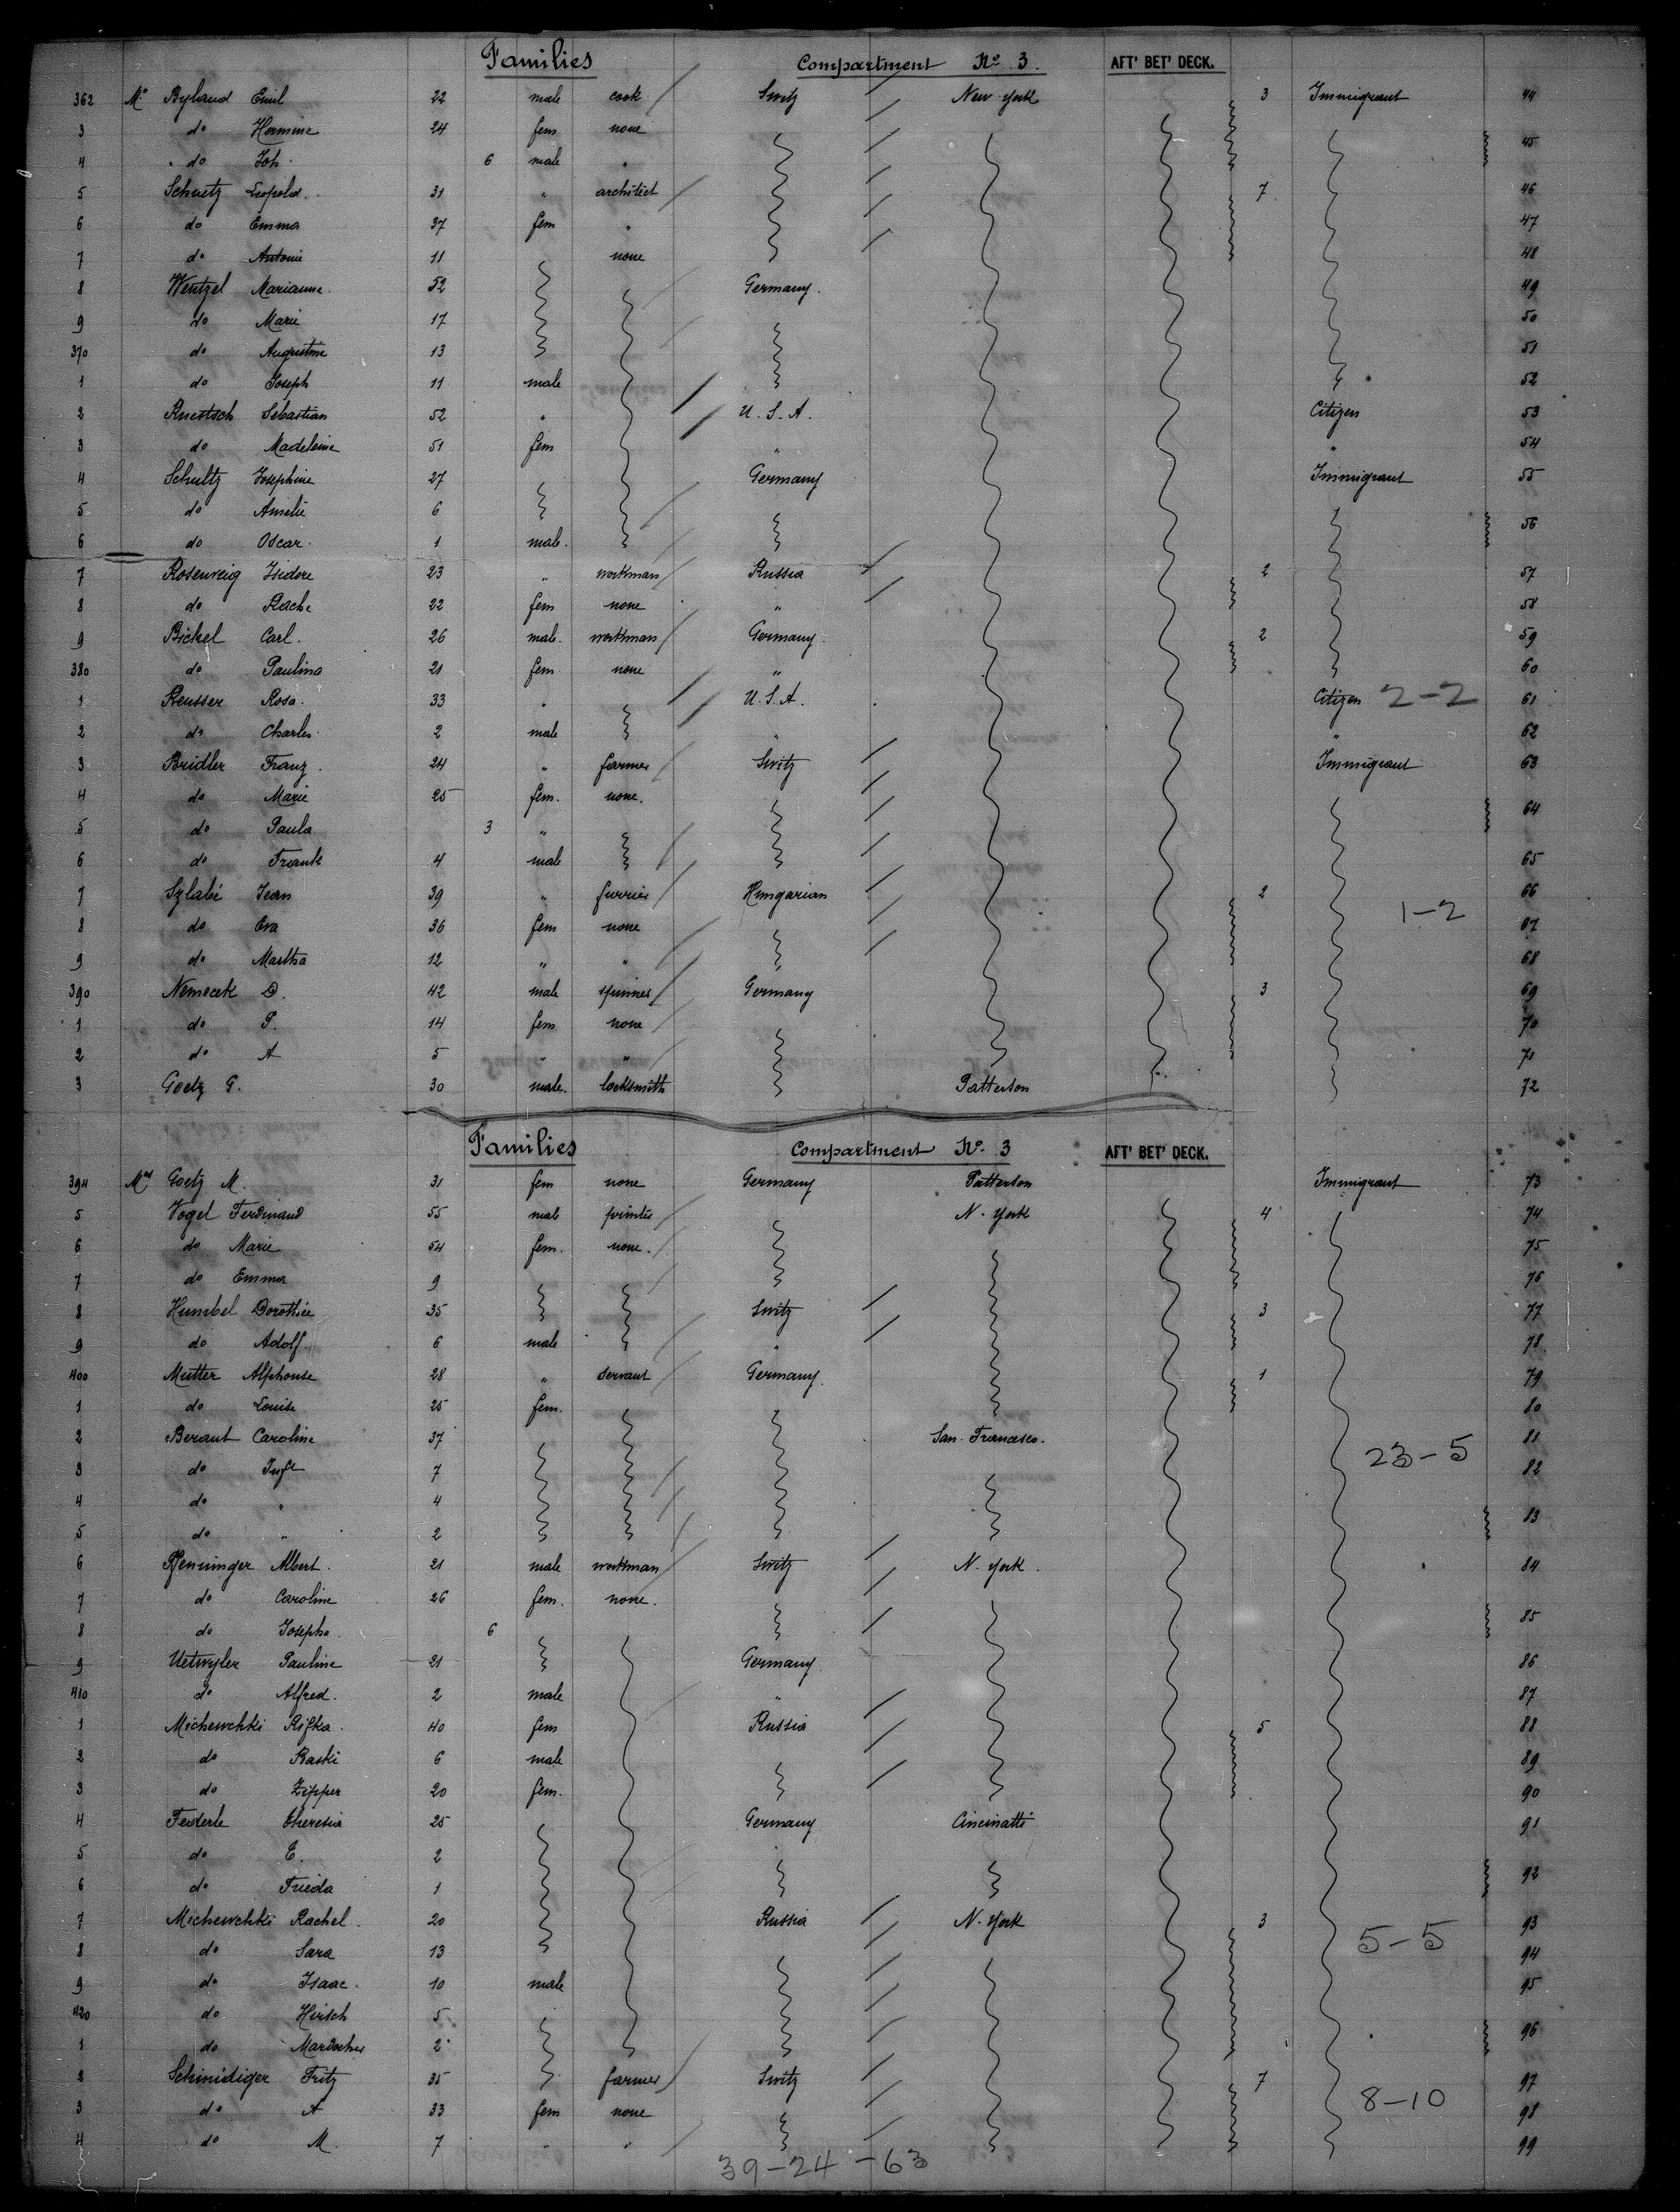 Families Compartment No. 3. AFT' BET' DECK.
362 Mr Ryland Emil 22 male cook Switz New York 3 Immigrant 44
3 do Hermine 24 fem none
4 do Joh. 6 male " 45
5 Schutz Leopold. 31 " architect 7 46
6 do Emma 37 fem " 47
7 do Antonie 11 none 48
8 Wentzel Marianne. 52 Germany. 49
9 do Marie 17 50
370 do Augustine 13 51
1 do Joseph 11 male 52
2 Ruestsch Sebastian 52 " U.S.A. Citizen 53
3 do Madeleine 51 fem " " 54
4 Schultz Josephine 27 Germany Immigrant 55
5 do Amelie 6
6 do Oscar. 1 male. 56
7 Rosenveig Isidore 23 " workman Russia 2 57
8 do Rache 22 fem none " 58
9 Bickel Carl. 26 male. workman Germany. 2 59
380 do Paulina 21 fem none " 60
1 Reusser Rosa. 33 " U.S.A. Citizen 2-2 61
2 do Charles 2 male " " 62
3 Bridler Franz. 24 " farmer Switz Immigrant 63
4 do Marie 25 fem. none. 64
5 do Paula 3 "
6 do Frank 4 male 65
7 Szlabé Jean 39 " furrier Hungarian 2 66
1-2
8 do Eva 36 fem none 67
9 do Martha 12 " " 68
390 Nemecek D. 42 male spinner Germany 3 69
1 do P. 14 fem none 70
2 do A 5 " " 71
3 Goetz G. 30 male. locksmith Patterson 72
Families Compartment No. 3 AFT' BET' DECK.
394 Mrs Goetz M. 31 fem none Germany Patterson Immigrant 73
5 Vogel Ferdinand 55 male printer N. York 4 74
6 do Marie 54 fem. none. 75
7 do Emma 9 76
8 Humbel Dorothée 35 Switz 3 77
9 do Adolf. 6 male " 78
400 Mutter Alphonse 28 " servant Germany. 1 79
1 do Louise 25 fem. 80
2 Beraut Caroline 37 San. Francisco. 81
23-5
3 do Inft 7 82
4 do " 4
5 do " 2 83
6 Pfenninger Albert. 21 male workman Switz N. York. 84
7 do Caroline 26 fem. none.
8 do Josepha. 6 85
9 Uetwyler Pauline 21 Germany 86
410 do Alfred. 2 male " 87
1 Michewchki Rifka. 40 fem Russia 5 88
2 do Raski 6 male 89
3 do Zipper 20 fem. 90
4 Federle Theresia 25 Germany Cincinatti 91
5 do E. 2
6 do Frieda 1 92
7 Michewchki Rachel. 20 Russia N. York 3 93
5-5
8 do Sara 13 94
9 do Isaac. 10 male 95
420 do Hirsch 5
1 do Mardocher 2 96
2 Schmidiger Fritz 35 farmer Switz 7 97
8-10
3 do A 33 fem none 98
4 do M. 7 " " 99
39-24-63